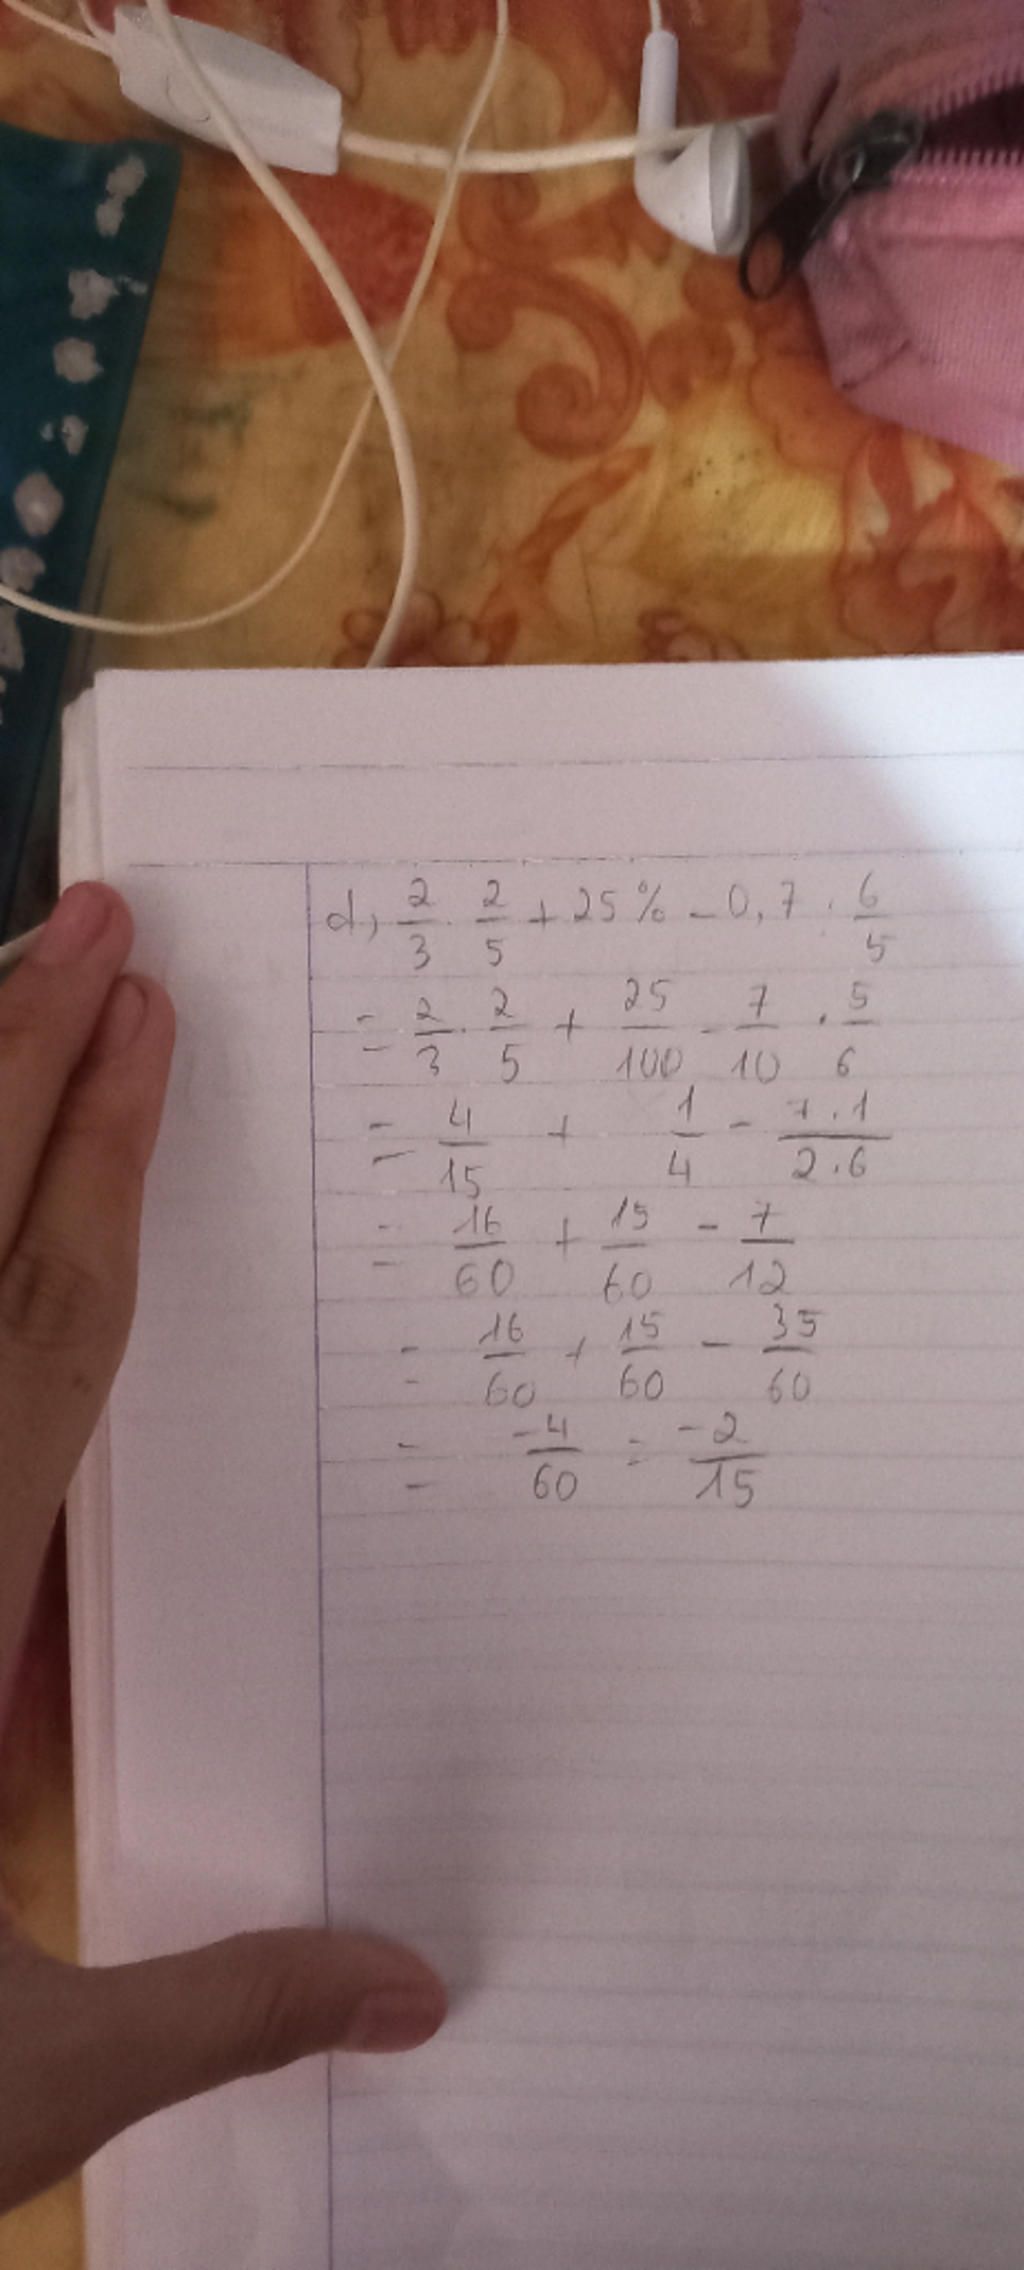 d, 2/3 . 2/5 + 25% - 0,7 . 6/5
= 2/3 . 2/5 + 25/100 - 7/10 . 5/6
= 4/15 + 1/4 - 7.1/2.6
= 16/60 + 15/60 - 7/12
= 16/60 + 15/60 - 35/60
= -4/60 = -2/15